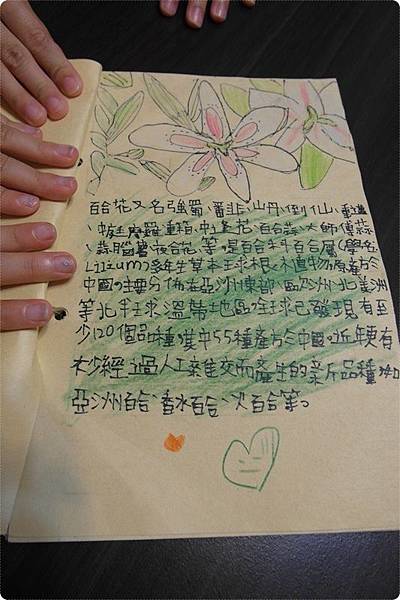 百合花又名強蜀、番韭、山丹、倒仙、重邁
、中庭、摩羅、重箱、中逢花、百合蒜、大師傅蒜
、蒜腦薯、夜合花等，是百合科百合屬(學名
Lilium)多年生草本球根植物，原產於
中國，主要分佈在亞洲東部、歐洲、北美洲
等北半球溫帶地區，全球已發現有至
少120個品種，其中55種產於中國。近年更有
不少經過人工雜交而產生的新品種，如
亞洲百合、香水百合、火百合等。